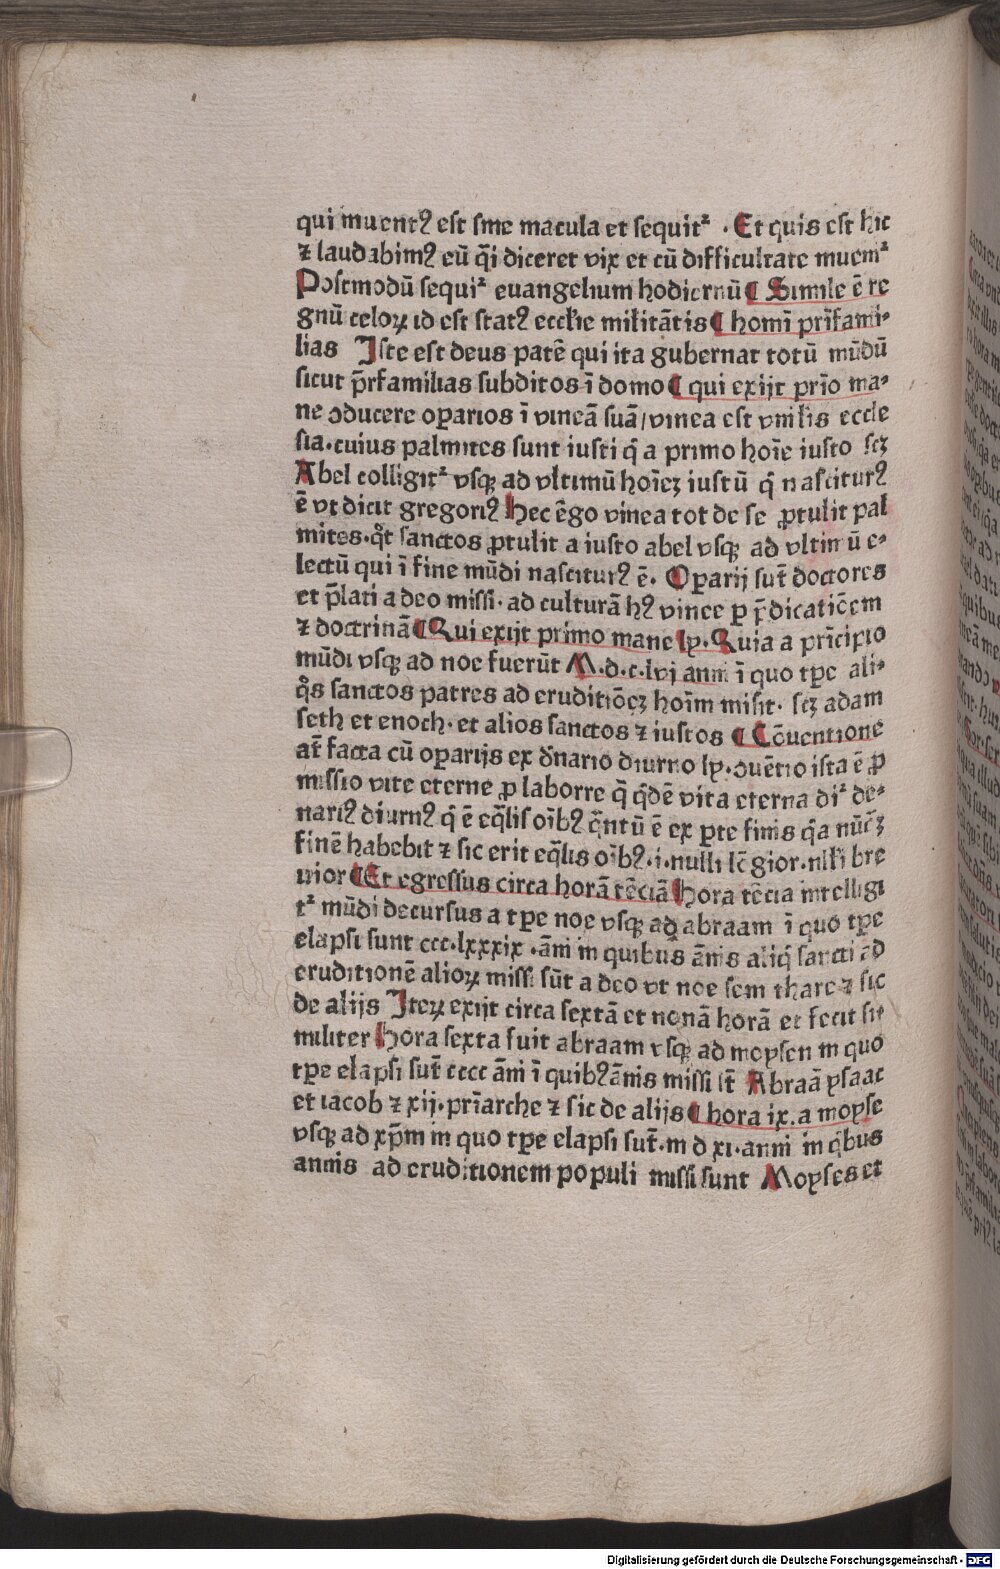 qui inuentꝰ est sine macula et sequitᷣ · Et quis est hic
⁊ laudabimꝰ eū q̄i diceret vix et cū difficultate inuemᷣ
Postmodū sequiᷣ euangelium hodiernū ¶ Simile ē re
gnū celoꝝ id est statꝰ eccłie militātis ¶ homī prīfami-
lias Iste est deus patē qui ita gubernat totū mūdū
sicut p̄rfamilias subditos ī domo ¶ qui exijt prīo ma-
ne ↄducere oꝑarios ī vineā suā/vinea est vniłis eccle
sia·cuius palmites sunt iusti q̄ a primo hoīe iusto scꝫ
Abel colligitᷣ vsqꝫ ad vltimū hoīeꝫ iustū q̄ nasciturꝰ
ē vt dicit gregoriꝰ hec ēgo vinea tot de se ꝓtulit pal
mites·q̊t sanctos ꝓtulit a iusto abel vsqꝫ ad vltimū e-
lectū qui ī fine mūdi nasciturꝰ ē. Oꝑarij sut̄ doctores
et p̄lati a deo missi·ad culturā hꝰ vinee ꝑ p̄dicatiōem
⁊ doctrinā ¶ Qui exijt primo mane lꝫ. Quia a prīcipio
mūdi vsqꝫ ad noe fuerūt M.d.c.lvj anni ī quo tꝑe ali-
q̊s sanctos patres ad eruditiōeꝫ hoīm misit· scꝫ adam
seth et enoch·et alios sanctos ⁊ iustos ¶ Cōuentione
at̄ facta cū oꝑarijs ex d̄nario diurno lꝫ.ↄuētio ista ē ꝓ
missio vite eterne ꝓ laborre q̄ q̇dē vita eterna diᷣ de-
nariꝰ diurnꝰ q̇ ē eq̄lis oībꝰ q̄ntū ē ex ꝑte finis q̄a nūc̄ꝫ
finē habebit ⁊ sic erit eq̄lis oībꝰ·i·nulli lōgior·nłi bre
uior ¶ Et egressus circa horā tēciā hora tēcia intelligi
tᷣ mūdi decursus a tꝑe noe vsqꝫ ad abraam ī quo tꝑe
elapsi sunt ccc·lxxxix·āni in quibus ānis aliq̇ sancti ad
eruditionē alioꝝ missi sūt a deo vt noe sem thare ⁊ sic
de alijs Iteꝝ exijt circa sextā et nonā horā et fecit si-
militer hora sexta fuit abraam vsqꝫ ad moysen in quo
tꝑe elapsi sut̄ cccc āni ī quibꝰ ānis missi st̄ Abraā ysaac
et iacob ⁊ xij·prīarche ⁊ sic de alijs ¶ hora ix.a moyse
vsqꝫ ad xp̄m in quo tꝑe elapsi sut̄·m d xi·anni in q̇bus
annis ad eruditionem populi missi sunt Moyses et
Digitalisierung gefördert durch die Deutsche Forschungsgemeinschaft - DFG